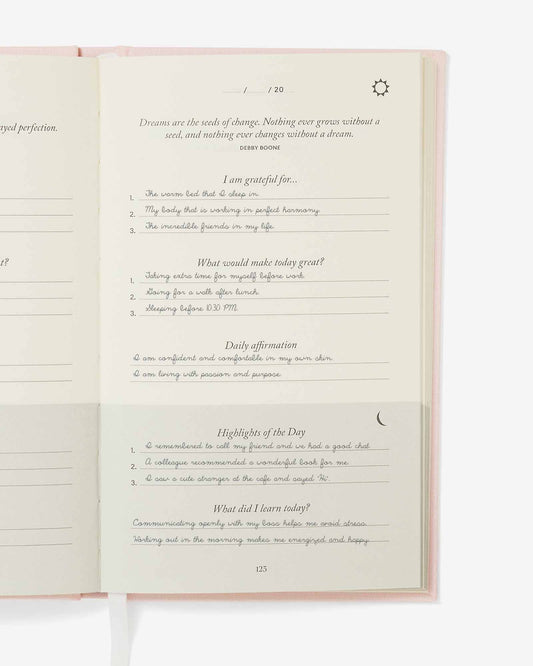 ayed perfection.
t?
/ / 20
Dreams are the seeds of change. Nothing ever grows without a
seed, and nothing ever changes without a dream.
DEBBY BOONE
I am grateful for...
1. The warm bed that I sleep in.
2. My body that is working in perfect harmony.
3. The incredible friends in my life.
What would make today great?
1. Taking extra time for myself before work.
2. Going for a walk after lunch.
3. Sleeping before 10.30 PM.
Daily affirmation
I am confident and comfortable in my own skin.
I am living with passion and purpose.
Highlights of the Day
1. I remembered to call my friend and we had a good chat.
2. A colleague recommended a wonderful book for me.
3. I saw a cute stranger at the cafe and sayed "Hi".
What did I learn today?
Communicating openly with my boss helps me avoid stress.
Working out in the morning makes me energized and happy.
123